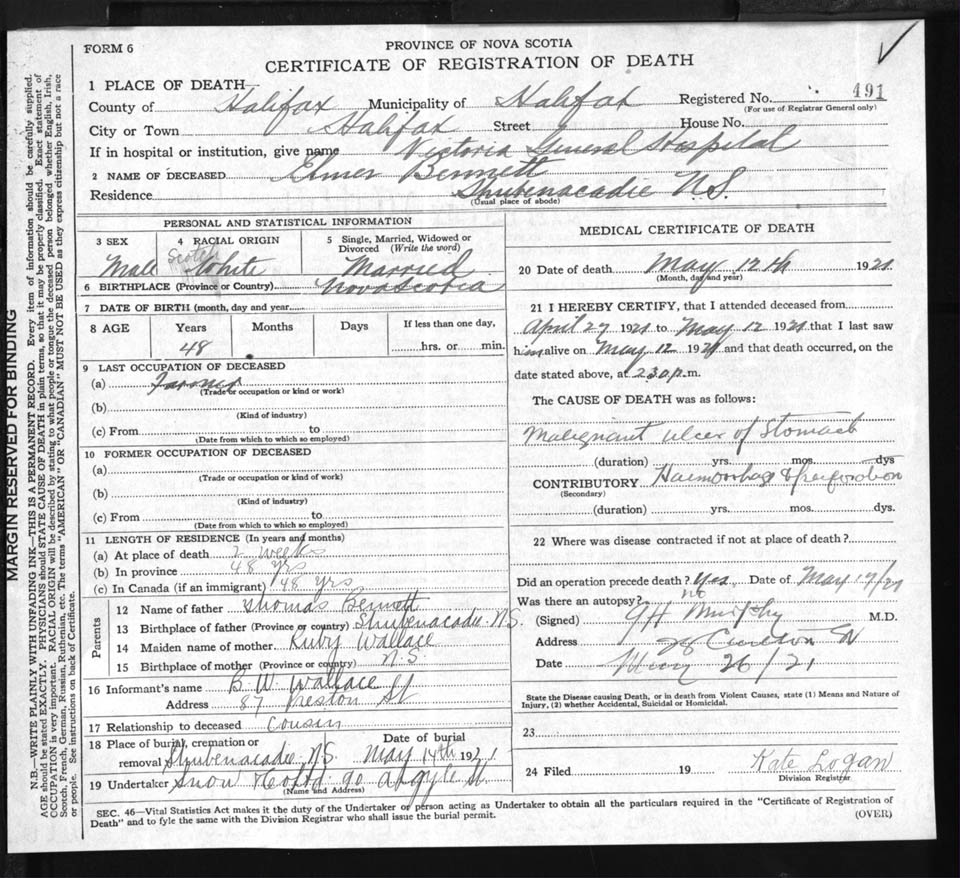 FORM 6
PROVINCE OF NOVA SCOTIA
CERTIFICATE OF REGISTRATION OF DEATH
1 PLACE OF DEATH
County of Halifax Municipality of Halifax Registered No. 491
(For use of Registrar General only)
City or Town Halifax Street House No.
If in hospital or institution, give name Victoria General Hospital
2 NAME OF DECEASED Elmer Bennett
Residence Shubenacadie N.S.
(Usual place of abode)
PERSONAL AND STATISTICAL INFORMATION
3 SEX Male
4 RACIAL ORIGIN Scotch White
5 Single, Married, Widowed or Divorced (Write the word) Married
6 BIRTHPLACE (Province or Country) Nova Scotia
7 DATE OF BIRTH (month, day and year)
8 AGE Years Months Days If less than one day,
48 hrs. or min.
9 LAST OCCUPATION OF DECEASED
(a) Farmer
(Trade or occupation or kind or work)
(b)
(Kind of industry)
(c) From to
(Date from which to which so employed)
10 FORMER OCCUPATION OF DECEASED
(a)
(Trade or occupation or kind of work)
(b)
(Kind of industry)
(c) From to
(Date from which to which so employed)
11 LENGTH OF RESIDENCE (In years and months)
(a) At place of death 2 weeks
(b) In province 48 yrs
(c) In Canada (if an immigrant) 48 yrs
Parents
12 Name of father Thomas Bennett
13 Birthplace of father (Province or country) Shubenacadie N.S.
14 Maiden name of mother Ruby Wallace
15 Birthplace of mother (Province or country) N S
16 Informant's name B. W. Wallace
Address 87 Preston St
17 Relationship to deceased Cousin
18 Place of burial, cremation or removal Shubenacadie N.S. Date of burial May 14th 1921
19 Undertaker Snow 90 Argyle St.
(Name and Address)
MEDICAL CERTIFICATE OF DEATH
20 Date of death May 12th 1921
(Month, day and year)
21 I HEREBY CERTIFY, that I attended deceased from
April 27 1921 to May 12 1921 that I last saw
him alive on May 12 1921 and that death occurred, on the
date stated above, at 2 30 p.m.
The CAUSE OF DEATH was as follows:
Malignant ulcer of Stomach
(duration) yrs. mos. dys
CONTRIBUTORY Haemorrhage & perforation
(Secondary)
(duration) yrs. mos. dys.
22 Where was disease contracted if not at place of death?
Did an operation precede death? Yes Date of May
Was there an autopsy? no
(Signed) Murphy M.D.
Address
Date 26/21
State the Disease causing Death, or in death from Violent Causes, state (1) Means and Nature of
Injury, (2) whether Accidental, Suicidal or Homicidal.
23
24 Filed 19 Kate Logan
Division Registrar
SEC. 46—Vital Statistics Act makes it the duty of the Undertaker or person acting as Undertaker to obtain all the particulars required in the "Certificate of Registration of
Death" and to fyle the same with the Division Registrar who shall issue the burial permit.
(OVER)
MARGIN RESERVED FOR BINDING
N.B.—WRITE PLAINLY WITH UNFADING INK—THIS IS A PERMANENT RECORD. Every item of information should be carefully supplied.
AGE should be stated EXACTLY. PHYSICIANS should STATE CAUSE OF DEATH in plain terms, so that it may be properly classified. Exact statement of
OCCUPATION is very important. RACIAL ORIGIN will be described by stating to what people or tongue the deceased person belonged whether English, Irish,
Scotch, French, German, Russian, Ruthenian, etc. The terms "AMERICAN" OR "CANADIAN" MUST NOT BE USED as they express citizenship but not a race
or people. See instructions on back of Certificate.